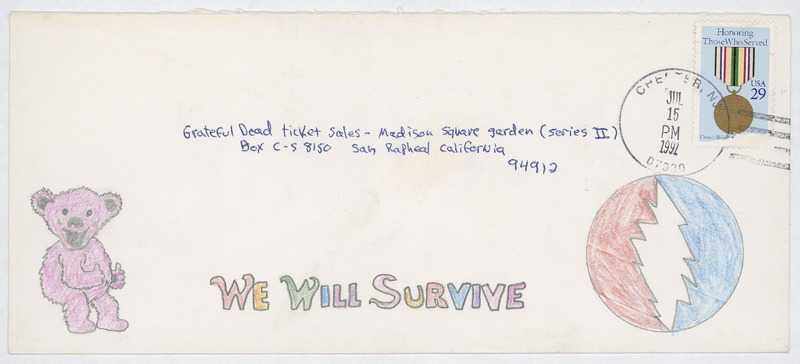 Honoring
Those Who Served
USA
29
CHESTER, NJ
JUL
15
PM
1992
07930
Grateful Dead ticket sales - Madison Square garden (series II)
Box C-S 8150 San Rapheal California
94912
WE WILL SURVIVE